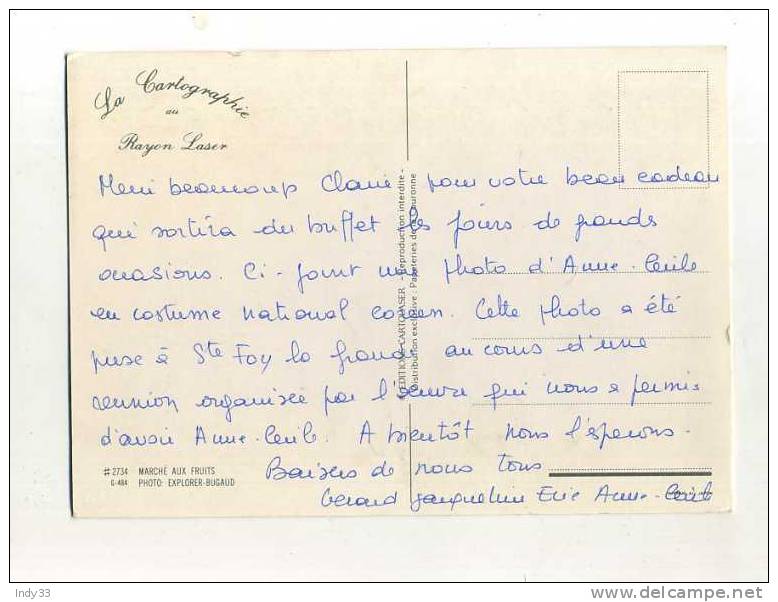 La Cartographie
au
Rayon Laser
Merci beaucoup Claire pour votre beau cadeau
qui sortira du buffet les jours de grands
occasions. Ci-joint une photo d'Anne-Cécile
en costume national coréen. Cette photo a été
prise à Ste Foy la Grande au cours d'une
réunion organisée par l'oeuvre qui nous a permis
d'avoir Anne-Cécile. A bientôt nous l'espérons.
Baisers de nous tous
Gérard Jacqueline Eric Anne-Cécile
#2734 MARCHÉ AUX FRUITS
G-484 PHOTO: EXPLORER-BUGAUD
EDITIONS CARTOLASER - Reproduction interdite -
Distribution exclusive : Papeteries de la Couronne
Indy33